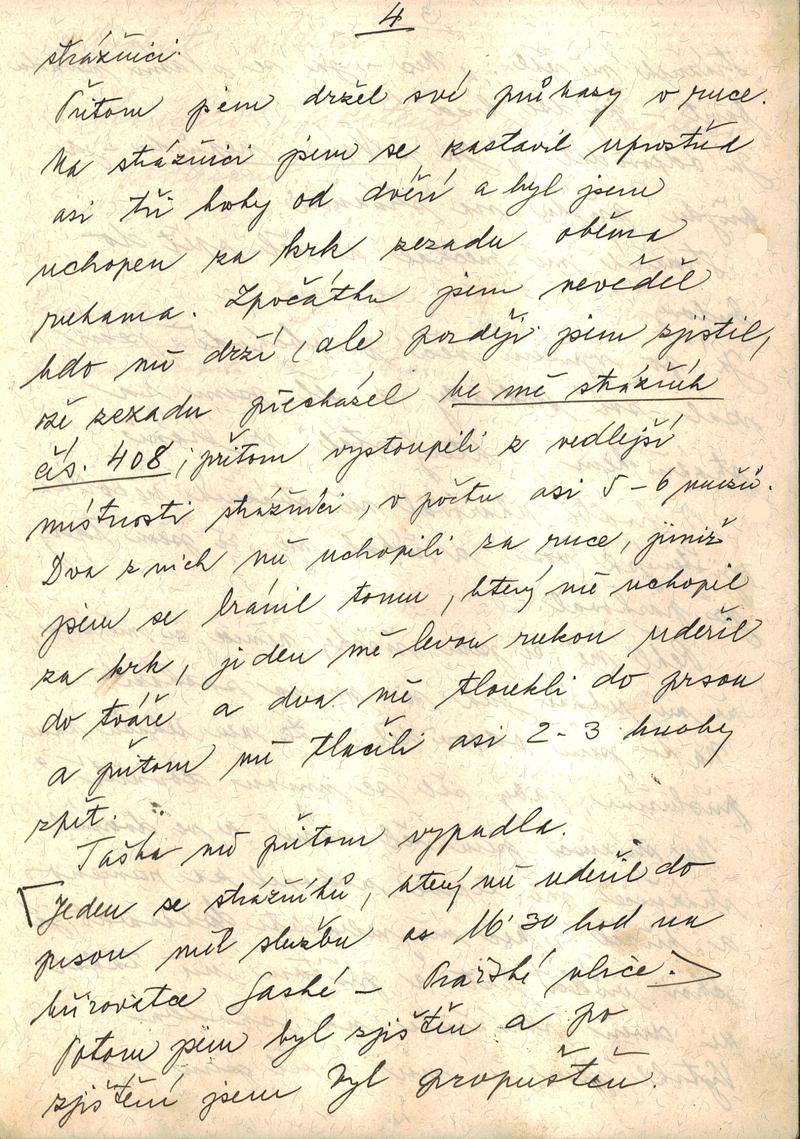 4
strážnici.
Přitom jsem držel své průkazy v ruce.
Na strážnici jsem se zastavil uprostřed
asi tři kroky od dveří a byl jsem
uchopen za krk zezadu oběma
rukama. Zpočátku jsem nevěděl
kdo mě drží, ale později jsem zjistil,
že zezadu přecházel ke mě strážník
čís. 408, přitom vystoupili z vedlejší
místnosti strážníci, v počtu asi 5-6 mužů.
Dva z nich mě uchopili za ruce, jimiž
jsem se bránil tomu, který mě uchopil
za krk, jeden mě levou rukou udeřil
do tváře a dva mě tloukli do prsou
a přitom mě tlačili asi 2-3 kroky
zpět.
Taška mě přitom vypadla.
Jeden se strážníků, který mě udeřil do
prsou měl službu os 16'30 hod na
křižovatce – Pražské ulice.
Potom jsem byl zjištěn a po
zjištění jsem byl propuštěn.